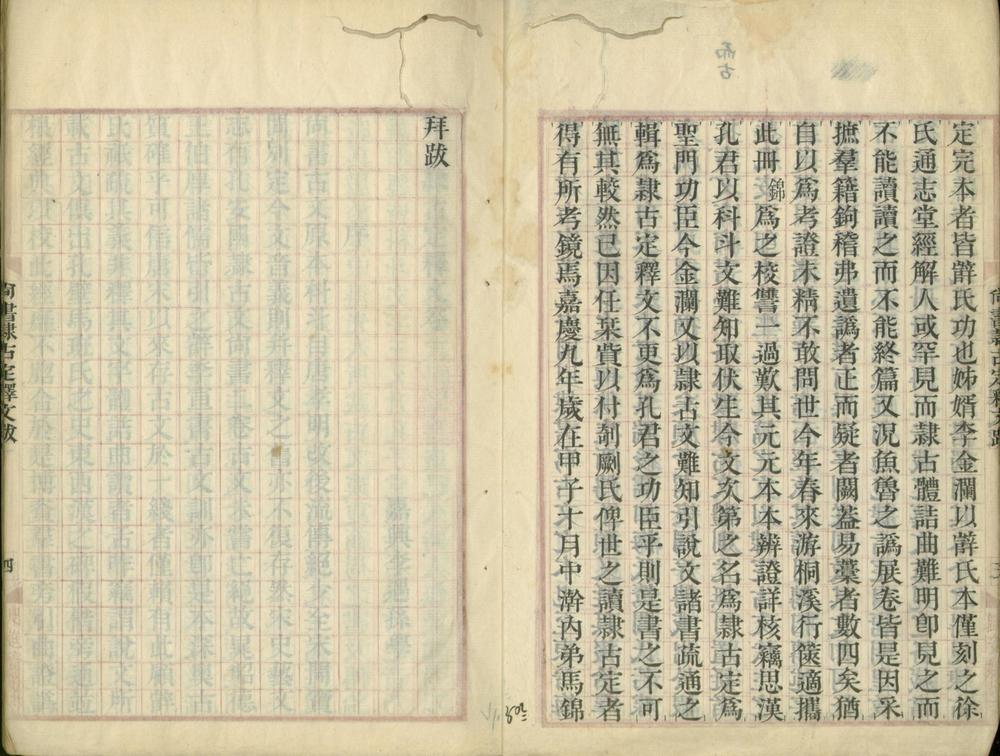 定完本者皆薛氏功也姊婿李金瀾以薛氏本僅刻之徐
氏通志堂經解人或罕見而隸古體詰曲難明卽見之而
不能讀讀之而不能終篇又況魚魯之譌展卷皆是因采
摭羣籍鉤稽弗遺譌者正而疑者闕蓋易藁者數四矣猶
自以爲考證未精不敢問世今年春來游桐溪行篋適攜
此冊錦爲之校讐一過歎其元元本本辨證詳核竊思漢
孔君以科斗文難知取伏生今文次第之名爲隸古定爲
聖門功臣今金瀾又以隸古文難知引說文諸書疏通之
輯爲隸古定釋文不更爲孔君之功臣乎則是書之不可
無其較然已因任棃費以付剞劂氏俾世之讀隸古定者
得有所考鏡焉嘉慶九年歲在甲子十月中澣內弟馬錦
拜跋
尚書隸古定釋文跋
四